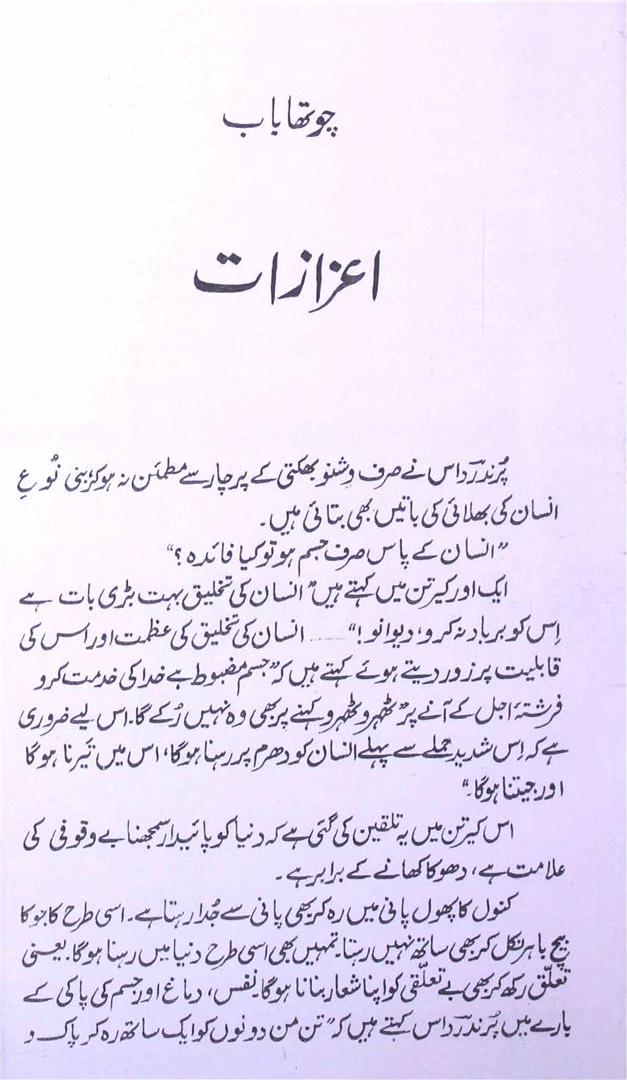 چوتھا باب
اعزازات
پُرندر داس نے صرف وِشنو بھکتی کے پرچار سے مطمئن نہ ہو کر بنی نُوعِ
انسان کی بھلائی کی باتیں بھی بتائی ہیں۔
”انسان کے پاس صرف جسم ہو تو کیا فائدہ؟“
ایک اور کیرتن میں کہتے ہیں ”انسان کی تخلیق بہت بڑی بات ہے
اِس کو برباد نہ کرو، دیوانو!“ ...... انسان کی تخلیق کی عظمت اور اس کی
قابلیت پر زور دیتے ہوئے کہتے ہیں کہ ”جسم مضبوط ہے خدا کی خدمت کرو
فرشتۂ اجل کے آنے پر ”ٹھہرو ٹھہرو کہنے پر بھی وہ نہیں رُکے گا۔ اس لیے ضروری
ہے کہ اِس شدید حملے سے پہلے انسان کو دھرم پر رہنا ہوگا، اس میں تَیرنا ہوگا
اور جیتنا ہوگا۔“
اس کیرتن میں یہ تلقین کی گئی ہے کہ دنیا کو پائیدار سمجھنا بے وقوفی کی
علامت ہے، دھوکا کھانے کے برابر ہے۔
کنول کا پھول پانی میں رہ کر بھی پانی سے جُدا رہتا ہے۔ اسی طرح کاجو کا
بیج باہر نکل کر بھی ساتھ نہیں رہتا۔ تمہیں بھی اسی طرح دنیا میں رہنا ہوگا۔ یعنی
تعلّق رکھ کر بھی بے تعلّقی کو اپنا شعار بنانا ہوگا۔ نفس، دماغ اور جسم کی پاکی کے
بارے میں پُرندر داس کہتے ہیں کہ ”تن من دونوں کو ایک ساتھ رہ کر پاک و